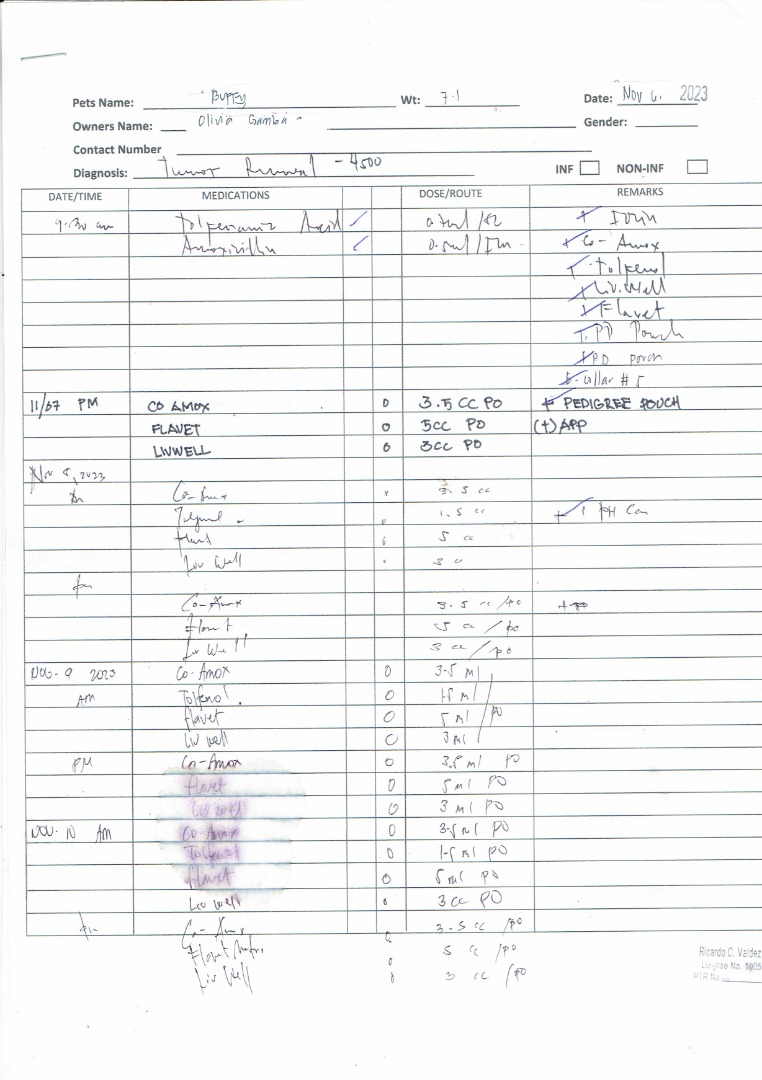 Pets Name: BUFFY Wt: 7.1 Date: Nov 6, 2023
Owners Name: Olivia Gamba Gender:
Contact Number
Diagnosis: Tumor Removal - 4500 INF NON-INF
DATE/TIME MEDICATIONS DOSE/ROUTE REMARKS
9:30 am Tolfenamic Acid ✓ /SC
Amoxicillin ✓ 0.5ml/IM + Co-Amox
+ Tolfenol
+ Liv.Well
+ Flavet
PD Pouch
PD pouch
E-collar # 5
11/07 PM CO AMOX 0 3.5 CC PO + PEDIGREE POUCH
FLAVET 0 5CC PO (+) APP
LIVWELL 0 3CC PO
Nov 8, 2023
Am Co-Amox 3.5 cc
Tolfenol 1.5 cc + 1 PH Can
Flavet 5 cc
Liv Well 3 cc
pm
Co-Amox 3.5 cc/po
Flavet 5 cc/po
Liv Well 3 cc/po
NOV-9 2023 Co-Amox 0 3.5 ml
AM Tolfenol. 0 1.5 ml
Flavet 0 5 ml /PO
Liv well 0 3 ml
PM Co-Amox 0 3.5 ml PO
Flavet 0 5 ml PO
Liv well 0 3 ml PO
NOV-10 AM Co-Amox 0 3.5 ml PO
Tolfenol 0 1.5 ml PO
Flavet 0 5 ml PO
Liv well 0 3 cc PO
pm Co-Amox 0 3.5 cc /po
Flavet 0 5 cc /po
Liv Well 0 3 cc /po
Ricardo C. Valdez
License No.
PTR No.